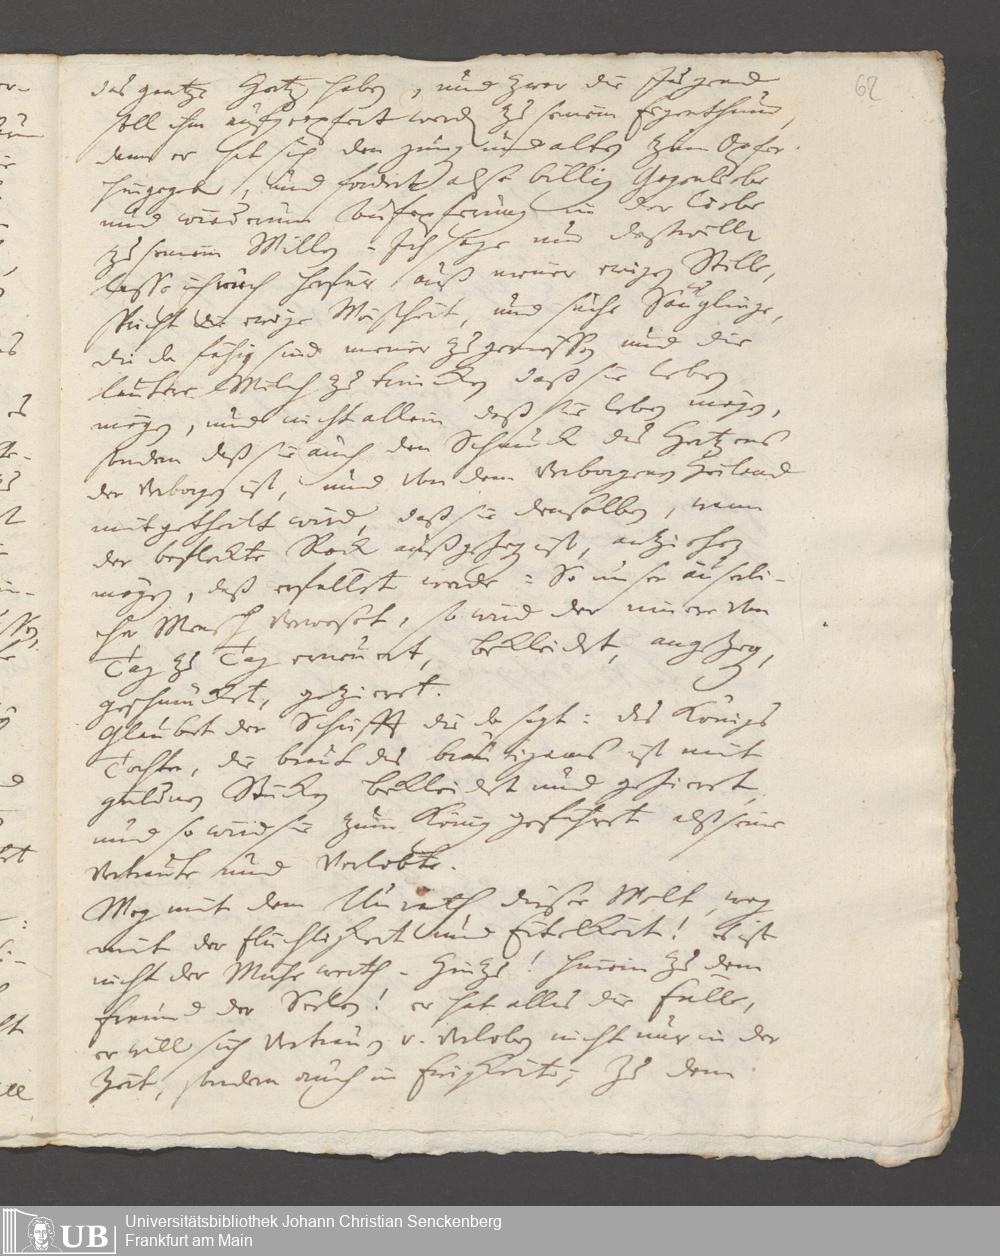 62
das gantze Hertz haben, und zwar die Jugend
soll ihm aufgeopfert werden zu seinem Eigenthum,
denn er hat sich den jungen und alten zum Opfer
hingegeben, und fordert also billig Gegenliebe
und wiederum Aufopferung in der Liebe
zu seinem Willen. Ich sage um deßwillen
lasse ich mich herfür auß meiner ewigen Stille,
spricht die ewige Weißheit, und suche Säuglinge,
die da fähig sind meiner zu geniessen und die
lautere Milch zu trincken daß sie leben
mögen, und nicht allein daß sie leben mögen,
sondern daß sie auch den Schmuck des Hertzens
der verborgen ist, und von dem verborgenen Heiland
mitgetheilt wird, daß sie denselben, wenn
der befleckte Rock außgezogen ist, anziehen
mögen, daß erfüllet werde: So unser äuserli-
cher Mensch verweset, so wird der innere von
Tag zu Tag erneuert, bekleidet, angezogen,
geschmücket, gezieret.
Glaubet der Schrifft die da sagt: des Königs
Tochter, die braut des bräutigams ist mit
güldnen Stücken bekleidet und gezieret,
und so wird sie zum König geführet alß seine
Vertraute und Verlobte.
Weg mit dem Unrath dieser Welt, weg
mit der flüchtigkeit und Eitelkeit! es ist
nicht der Mühe werth. Hinzu! hinein zu dem
freund der Seelen! er hat alles die fülle,
er will sich vertrauen u. verloben nicht nur in der
Zeit, sondern auch in Ewigkeit; Zu dem
UB
Universitätsbibliothek Johann Christian Senckenberg
Frankfurt am Main